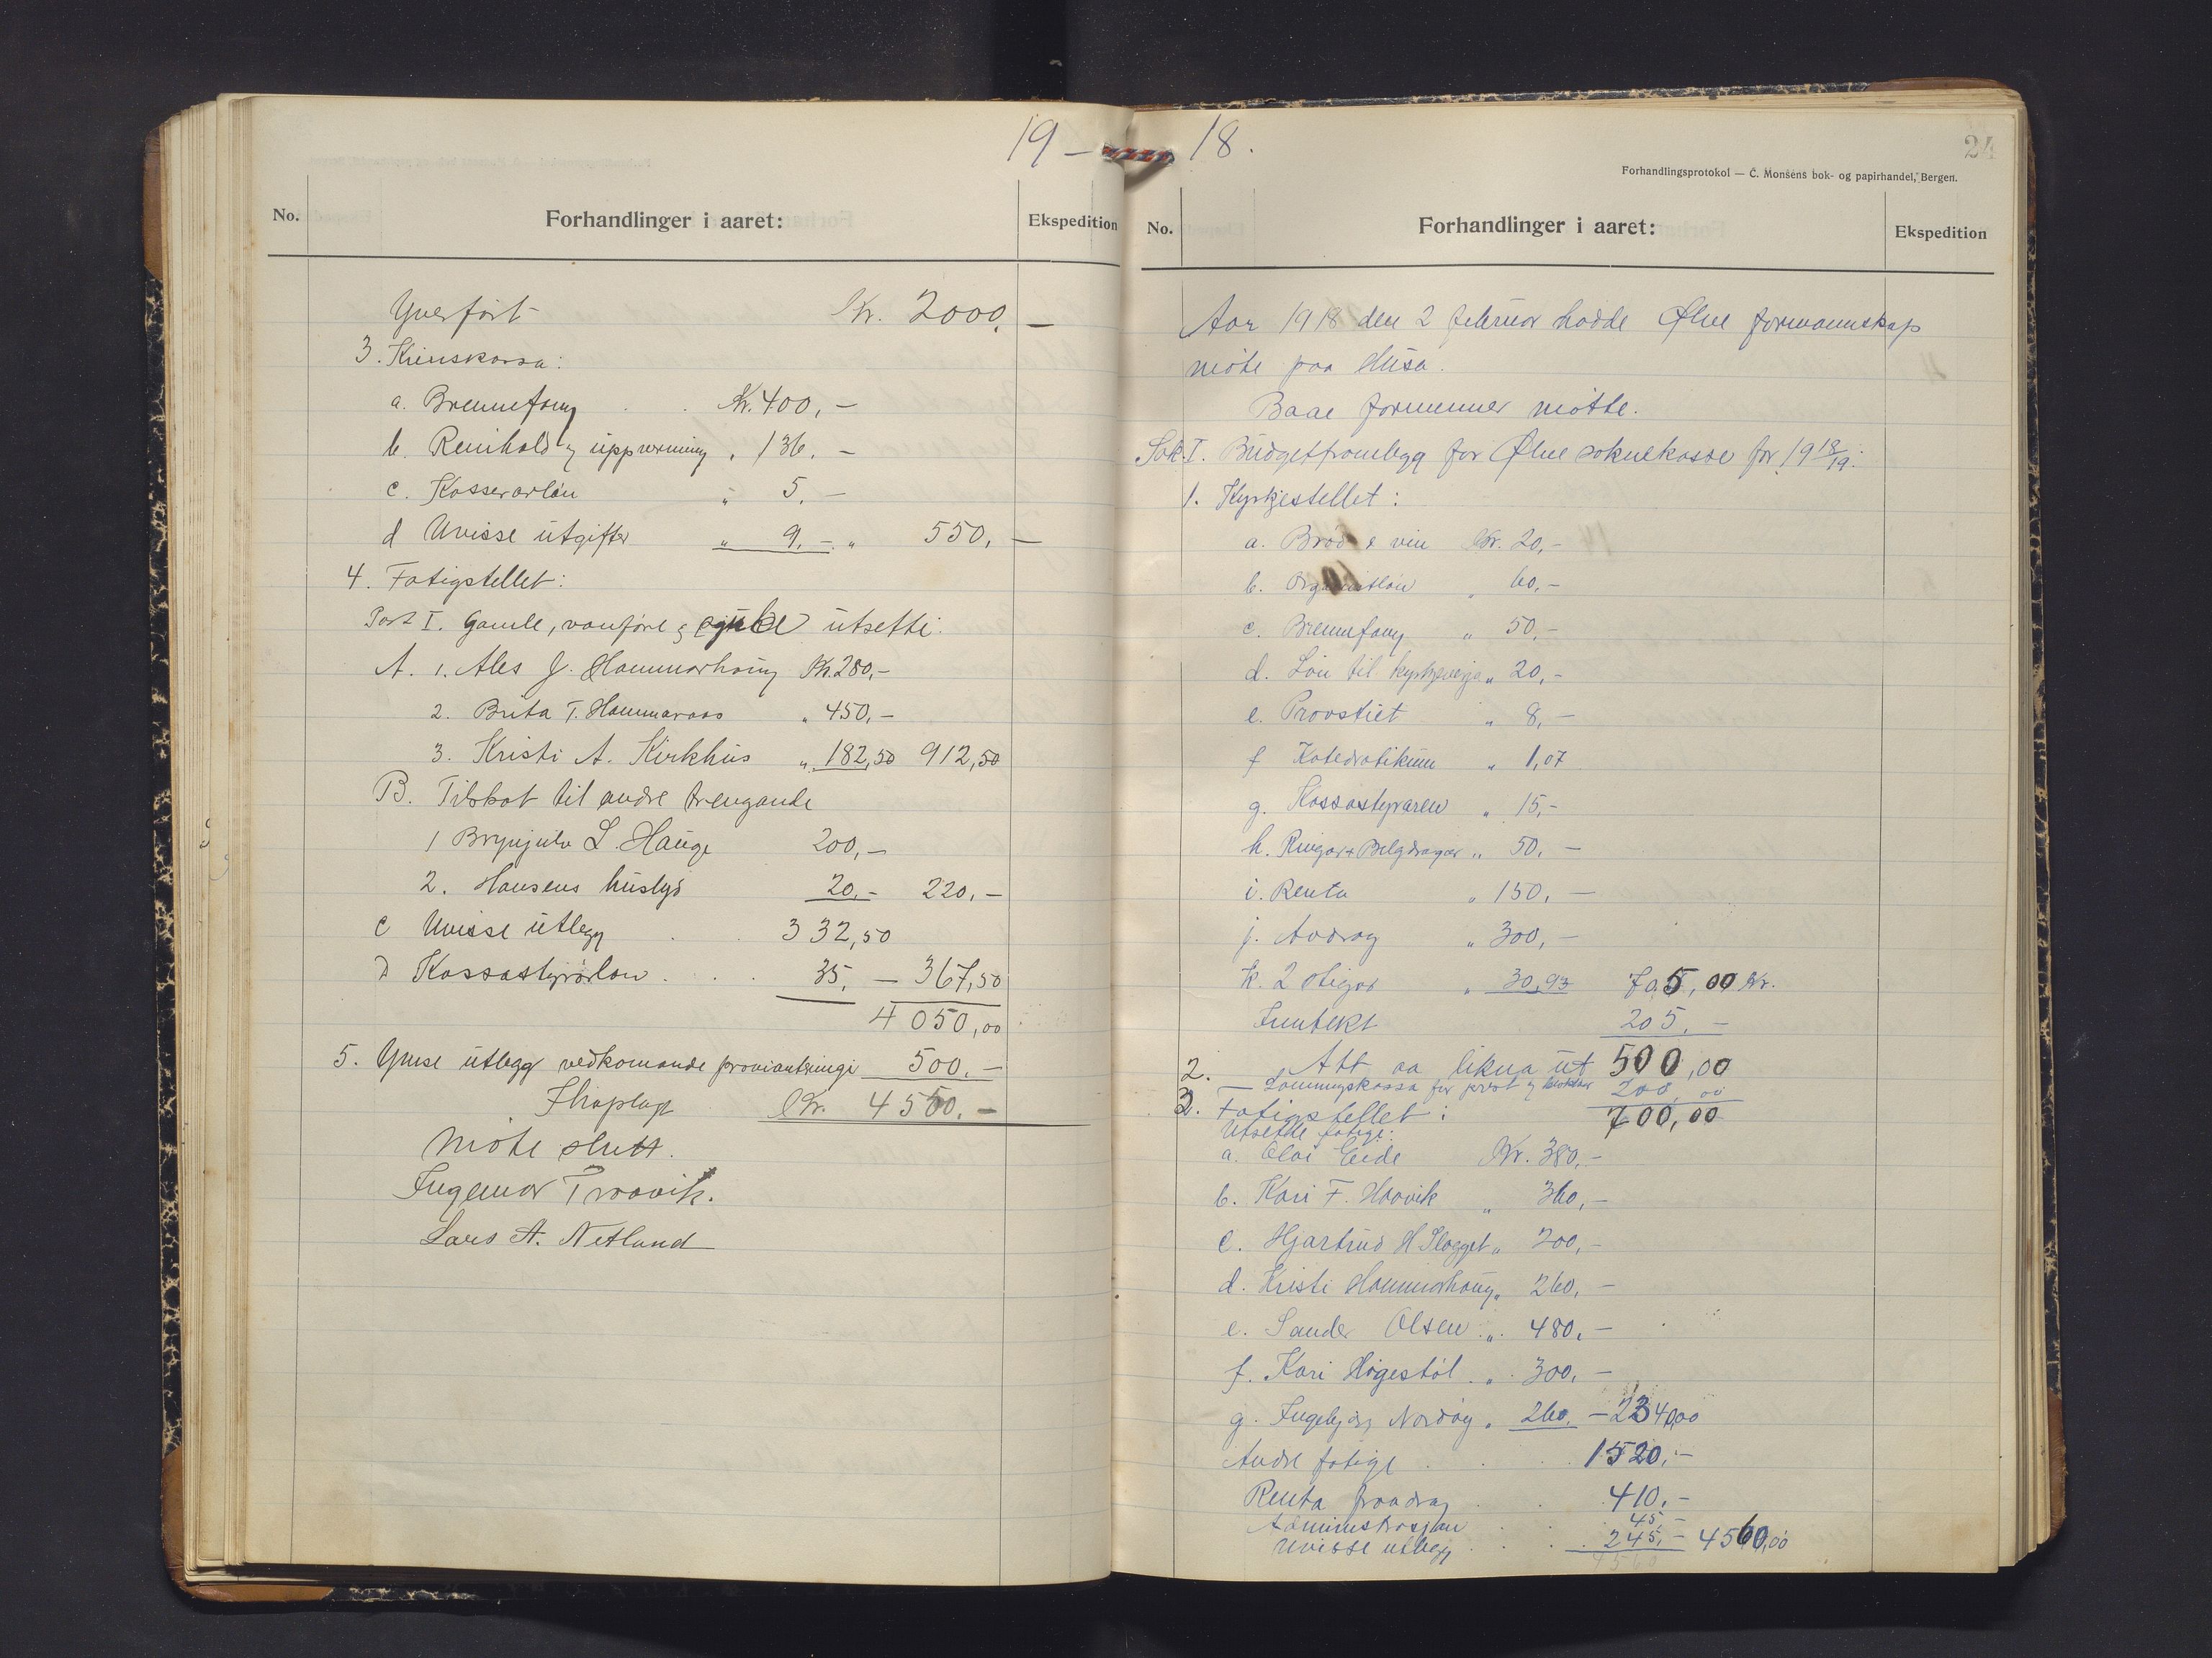 19 – 18.
No. Forhandlinger i aaret: Ekspedition
Yverført Kr. 2000, –
3. Krinskassa:
a. Brennefang . . Kr. 400, –
b. Reinhald og uppvarming „ 136, –
c. Kasserarløn „ 5, –
d Uvisse utgifter „ 9, – „ 550, –
4. Fatigstellet:
Post I. Gamle, vanføre & sjuke utsette:
A. 1. Ales J. Hammarhaug Kr. 280, –
2. Brita T. Hammaraas „ 450, –
3. Kristi A. Kirkhus „ 182,50 912,50
B. Tilskot til andre trengande
1 Brynjulv L. Hauge 200, –
2. Hansens huslyd 20, – 220, –
C Uvisse utlegg . . 332,50
D Kassastyrarløn . . . 35, – 367,50
4050,00
5. Ymse utlegg vedkomande provianteringi 500. –
Ihoplagt Kr. 4550. –
Møte slutt.
Ingemar Traavik.
Lars A. Netland
24
Forhandlingsprotokol — C. Monsens bok- og papirhandel, Bergen.
No. Forhandlinger i aaret: Ekspedition
Aar 1918 den 2 februar hadde Ølve formannskap
møte paa Husa.
Baae formenner møtte.
Sak I. Budgetframlegg for Ølve soknekasse for 19 18/19:
1. Kyrkjestellet:
a. Brød & vin Kr. 20, –
b. Organistløn „ 60, –
c. Brennefang „ 50, –
d. Løn til kyrkjeverja „ 20, –
e. Provstiet „ 8, –
f Katedratikum „ 1,07
g. Kassastyraren „ 15, –
h. Ringar + Belgdragar „ 50, –
i. Renta „ 150, –
j. Avdrag „ 300, –
k. 2 stigar „ 30,93 705,00 Kr.
Inntekt 205, –
Att aa likna ut 500,00
2. — Lønningskassa for prest og klokkar 200,00
3. Fatigstellet: 700,00
Utsette fatige:
a. Olai Eide Kr. 380, –
b. Kari F. Haavik „ 360, –
c. Hjartrud H Slagget „ 200, –
d. Kristi Hammarhaug „ 260, –
e. Sander Olsen „ 480, –
f. Kari Høgestøl „ 300, –
g. Ingebjørg Nordøy „ 260, – 2340,00
Andre fatige . . . 1520, –
Renta fraadrag . . 410, –
Administrasjon . . 45, –
Uvisse utlegg . . . 245, – 4560,00